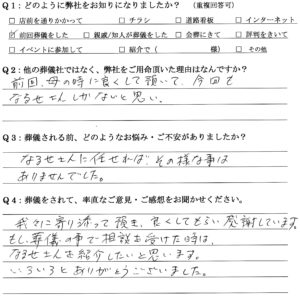 Q1：どのように弊社をお知りになりましたか？　（重複回答可）
□ 店前を通りかかって　□ チラシ　□ 道路看板　□ インターネット
☑ 前回葬儀をした　□ 親戚/知人が葬儀をした　□ 会葬にきて　□ 評判をきいて
□ イベントに参加して　□ 紹介で（　　　様）　□ その他
Q2：他の葬儀社ではなく、弊社をご用命頂いた理由はなんですか？
前回、母の時に良くして頂いて、今回も
なるせさんしかないと思い。
Q3：葬儀される前、どのようなお悩み・ご不安がありましたか？
なるせさんに任せれば、その様な事は
ありませんでした。
Q4：葬儀をされて、率直なご意見・ご感想をお聞かせください。
我々に寄り添って頂き、良くしてもらい感謝しています。
もし、葬儀の事で相談を受けた時は、
なるせさんを紹介したいと思います。
いろいろとありがとうございました。